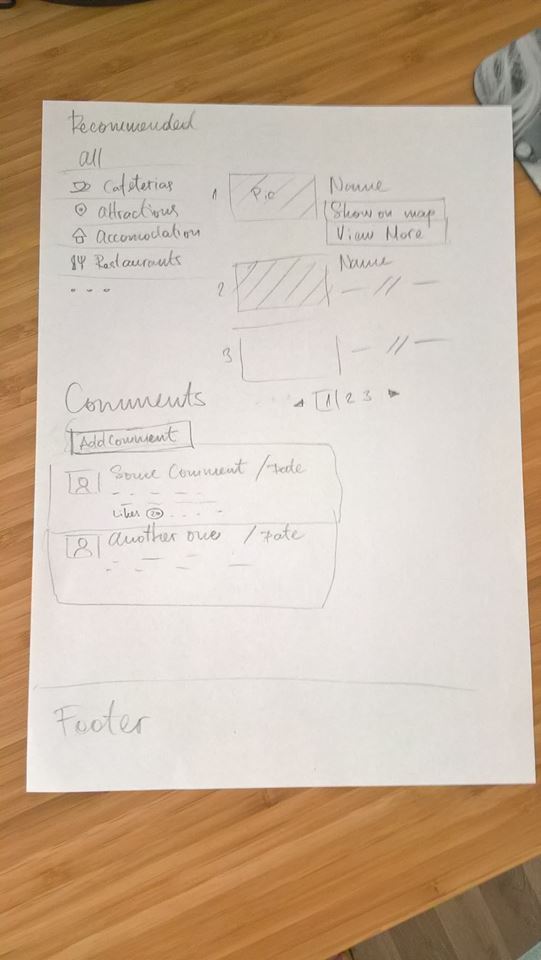 Recommended
all
Cafeterias
attractions
Accomodation
Restaurants
1 Pic Name
Show on map
View More
2 Name
3
1 2 3
Comments
Add Comment
Some Comment / Date
Likes 20
another one / Date
Footer